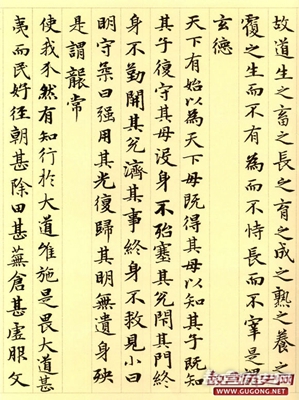 故道生之畜之長之育之成之熟之養之
覆之生而不有為而不恃長而不宰是謂
玄德
天下有始以為天下母既得其母以知其子既知
其子復守其母没身不殆塞其兌閉其門終
身不勤開其兌濟其事終身不救見小曰
明守柔曰强用其光復歸其明無遺身殃
是謂襲常
使我介然有知行於大道唯施是畏大道甚
夷而民好徑朝甚除田甚蕪倉甚虛服文
故宫历史网
www.gugong.net